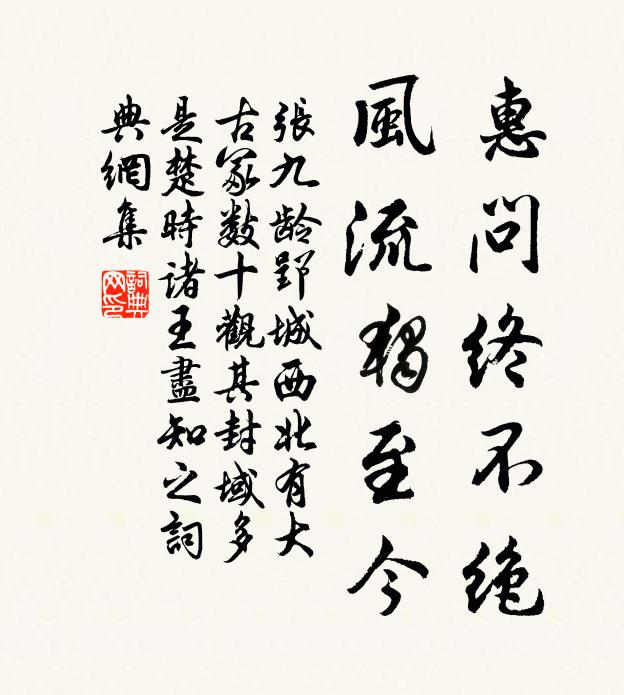 惠問終不絶
風流獨至今
張九龄郢城西北有大
古冢数十觀其封域多
是楚時诸王盡知之詞
典網集
詞典
网印